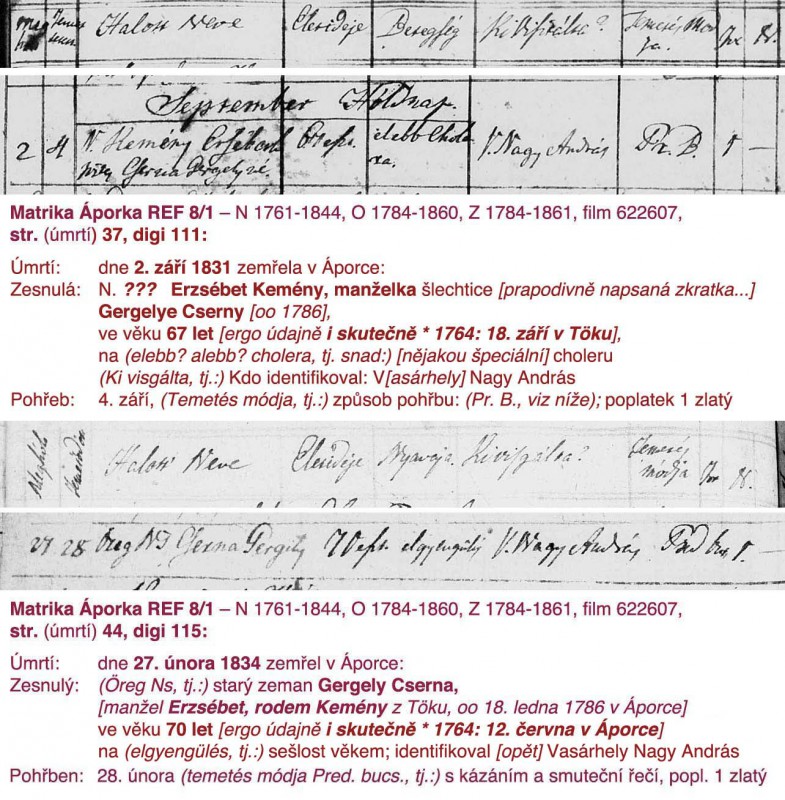 Halott Neve Eleiideje Betegség Ki Visitálta? Temetés Mod
ja. Fr N.
September Hóldnap.
2 4 N. Kemény Ersébeth elebb Chole
ra. V. Nagy András Pr. B. 1 —
Cserna Gergely né.
Matrika Áporka REF 8/1 – N 1761-1844, O 1784-1860, Z 1784-1861, film 622607,
str. (úmrtí) 37, digi 111:
Úmrtí: dne 2. září 1831 zemřela v Áporce:
Zesnulá: N. ??? Erzsébet Kemény, manželka šlechtice [prapodivně napsaná zkratka...]
Gergelye Cserny [oo 1786],
ve věku 67 let [ergo údajně i skutečně * 1764: 18. září v Töku],
na (elebb? alebb? cholera, tj. snad:) [nějakou špeciální] choleru
(Ki visgálta, tj.:) Kdo identifikoval: V[asárhely] Nagy András
Pohřeb: 4. září, (Temetés módja, tj.:) způsob pohřbu: (Pr. B., viz níže); poplatek 1 zlatý
Halott Neve Eleiideje Nyavaja. Ki visgálta? Temetés
módja Fr N.
27 28 Öreg Ns Cserna Gergely 70 elgyengülés V. Nagy András Préd 1. —
Matrika Áporka REF 8/1 – N 1761-1844, O 1784-1860, Z 1784-1861, film 622607,
str. (úmrtí) 44, digi 115:
Úmrtí: dne 27. února 1834 zemřel v Áporce:
Zesnulý: (Öreg Ns, tj.:) starý zeman Gergely Cserna,
[manžel Erzsébet, rodem Kemény z Töku, oo 18. ledna 1786 v Áporce]
ve věku 70 let [ergo údajně i skutečně * 1764: 12. června v Áporce]
na (elgyengülés, tj.:) sešlost věkem; identifikoval [opět] Vasárhely Nagy András
Pohřben: 28. února (temetés módja Pred. bucs., tj.:) s kázáním a smuteční řečí, popl. 1 zlatý